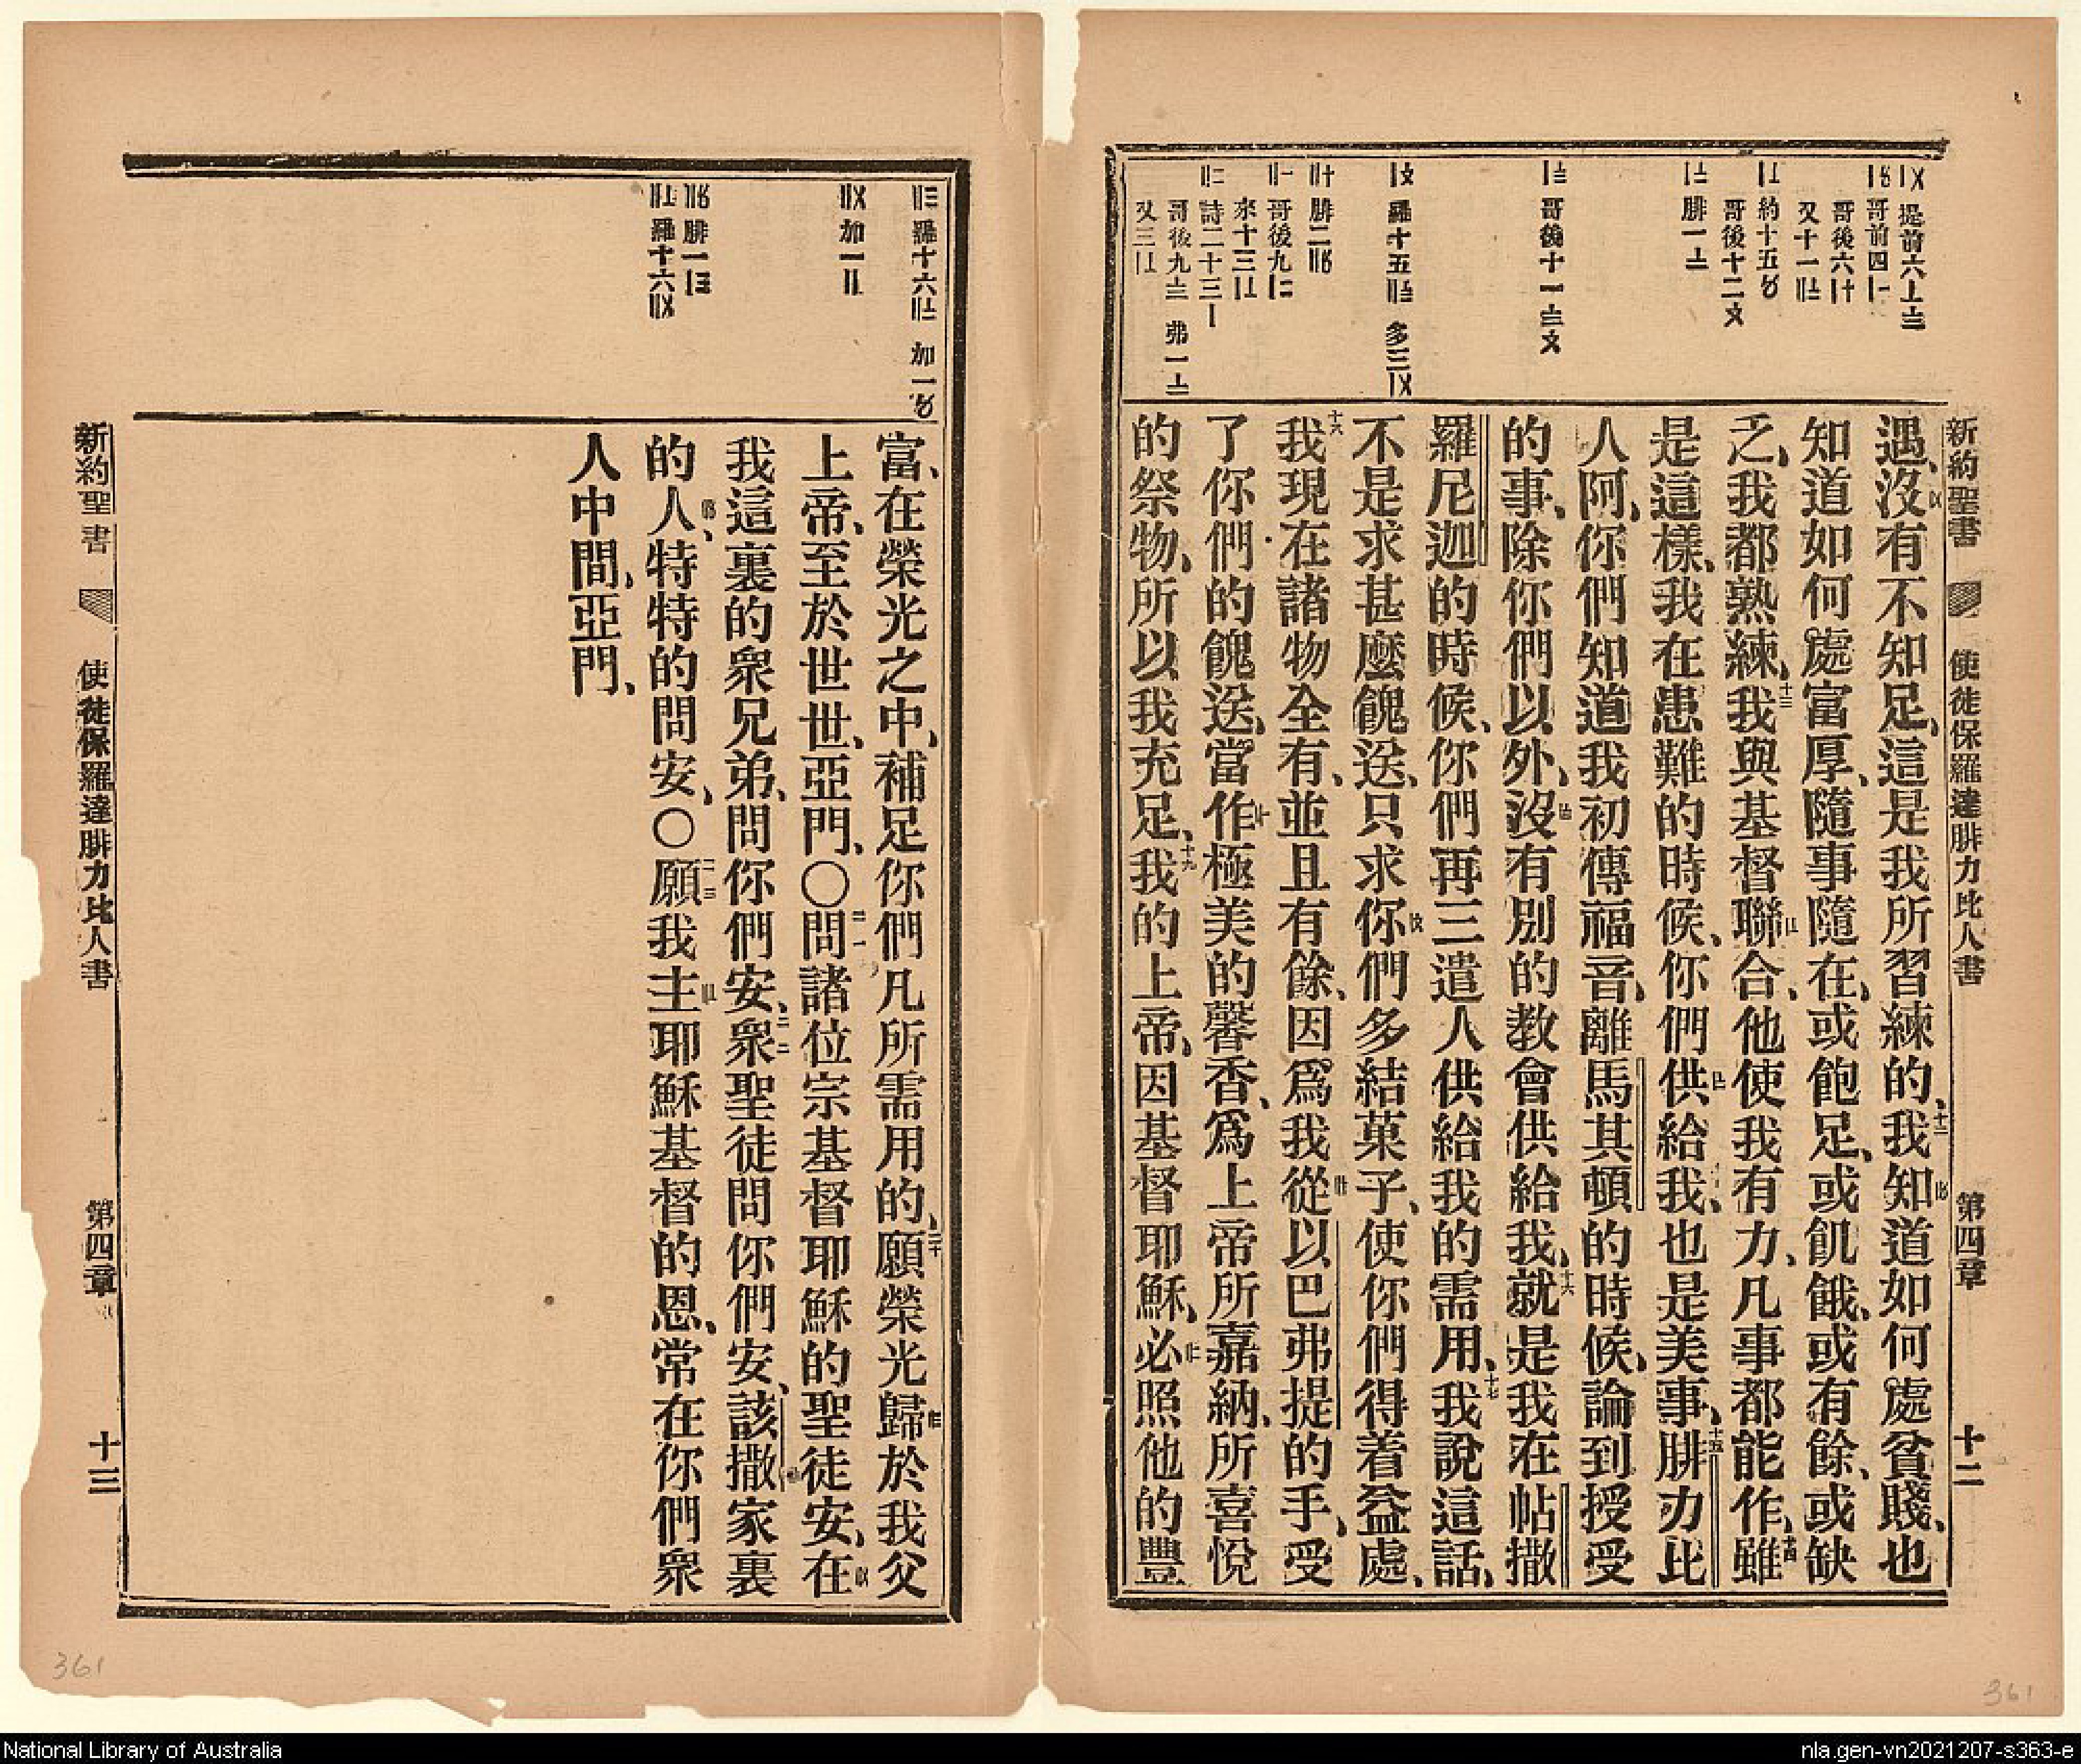 新約聖書 使徒保羅達腓力比人書 第四章 十二
提前六
哥前四
哥後六
又十一
約十五
哥後十二
腓一
哥後十一
羅十五 多三
腓二
哥後九
來十三
詩二十三
哥後九 弗一
又三
遇、沒有不知足、這是我所習練的、十二我知道如何處貧賤、也
知道如何處富厚、隨事隨在、或飽足、或飢餓、或有餘、或缺
乏、我都熟練、十三我與基督聯合、他使我有力、凡事都能作、十四雖
是這樣、我在患難的時候、你們供給我、也是美事、十五腓力比
人阿、你們知道我初傳福音、離馬其頓的時候、論到授受
的事、除你們以外、沒有別的教會供給我、十六就是我在帖撒
羅尼迦的時候、你們再三遣人供給我的需用、十七我說這話、
不是求甚麼餽送、只求你們多結菓子、使你們得着益處、
十六我現在諸物全有、並且有餘、因爲我從以巴弗提的手、受
了你們的餽送、當作極美的馨香、爲上帝所嘉納、所喜悅
的祭物、所以我充足、十九我的上帝、因基督耶穌、必照他的豐
羅十六 加一
加一
腓一
羅十六
富、在榮光之中、補足你們凡所需用的、二十願榮光歸於我父
上帝、至於世世、亞門、〇二一問諸位宗基督耶穌的聖徒安、在
我這裏的衆兄弟、問你們安、二二衆聖徒問你們安、該撒家裏
的人、特特的問安、〇二三願我主耶穌基督的恩、常在你們衆
人中間、亞門、
新約聖書 使徒保羅達腓力比人書 第四章 十三
361
361
National Library of Australia
nla.gen-vn2021207-s363-e